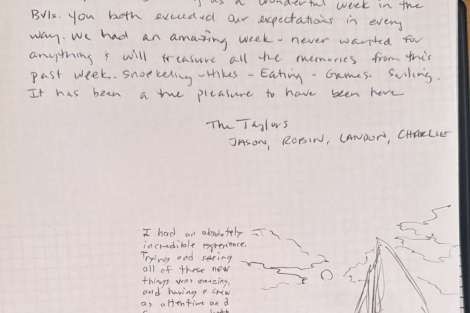 as a wonderful week in the
BVIs. You both exceeded our expectations in every
way. We had an amazing week - never wanted for
anything & will treasure all the memories from this
past week. Snorkeling - Hikes - Eating - Games. Sailing.
It has been a true pleasure to have been here
The Taylors
JASON, ROBIN, LANDON, CHARLIE
I had an absolutely
incredible experience.
Trying and seeing
all of these new
things was amazing,
and having a crew
as attentive and
both